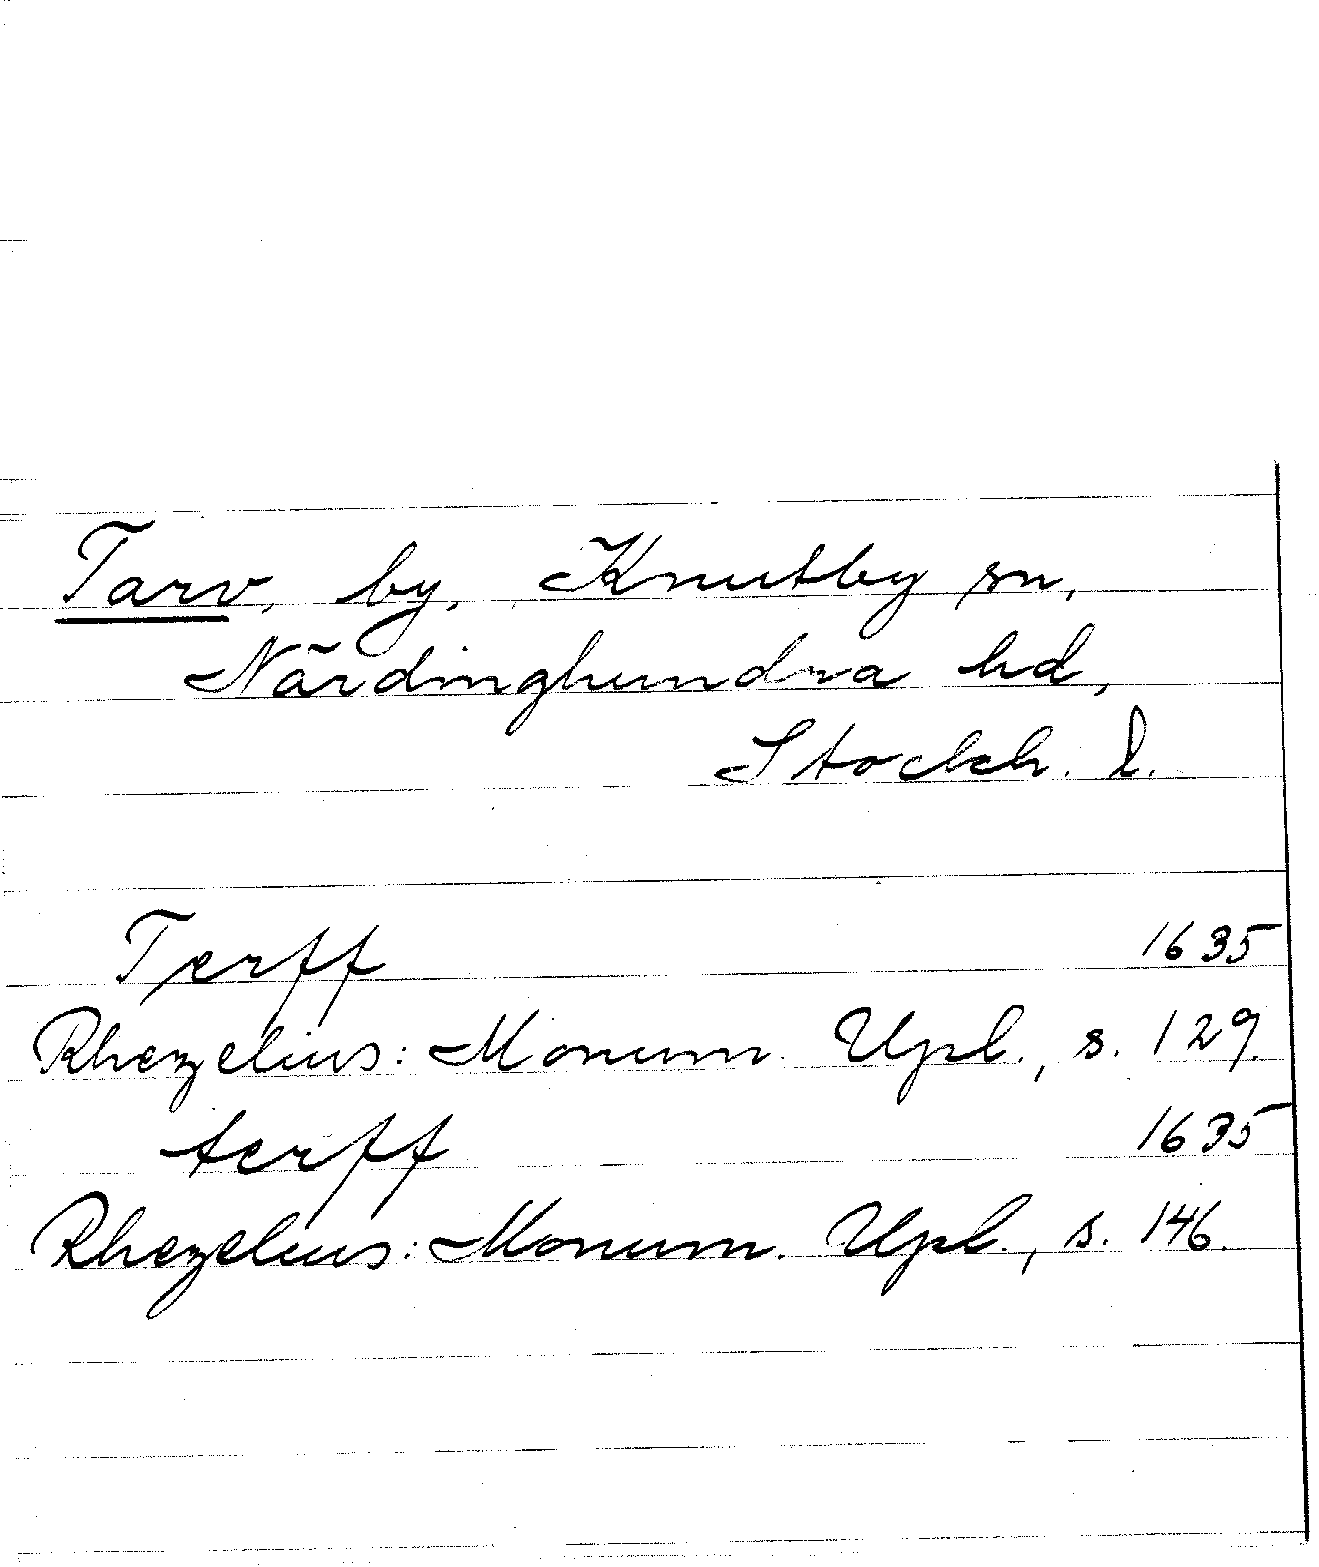 Tarv, by, Knutby sn,
Närdinghundra hd,
Stockh. l.
Terff 1635
Rhezelius: Monum. Upl., s. 129.
terff 1635
Rhezelius: Monum. Upl., s. 146.